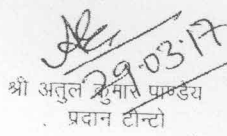 29.03.17
श्री अतुल कुमार पाण्डेय
प्रदान टीन्टो